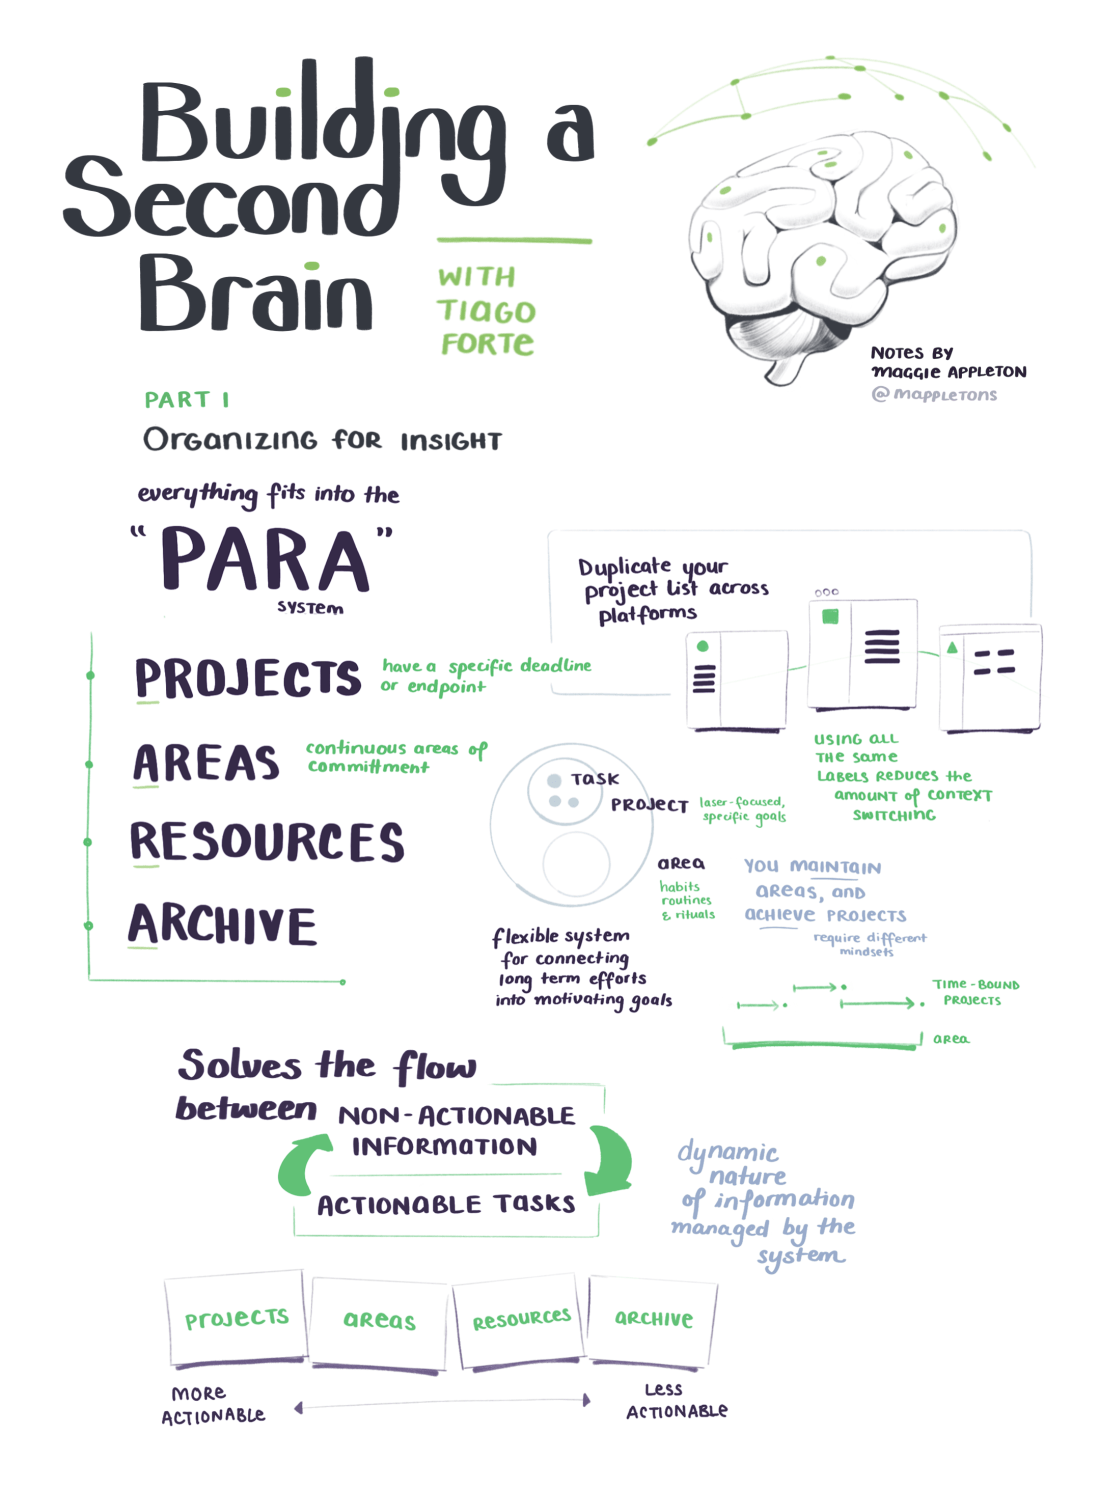 Building a
Second
Brain
WITH
TIAGO
FORTE
NOTES BY
MAGGIE APPLETON
@mappletons
PART 1
ORGANIZING FOR INSIGHT
everything fits into the
"PARA"
SYSTEM
PROJECTS
have a specific deadline
or endpoint
AREAS
continuous areas of
committment
RESOURCES
ARCHIVE
Duplicate your
project list across
platforms
USING ALL
THE SAME
LABELS REDUCES the
AMOUNT of CONTEXT
SWITCHING
TASK
PROJECT
laser-focused,
specific goals
AREA
habits
routines
& rituals
YOU MAINTAIN
AREAS, AND
ACHIEVE PROJECTS
require different
mindsets
flexible system
for connecting
long term efforts
into motivating goals
TIME-BOUND
PROJECTS
AREA
Solves the flow
between
NON-ACTIONABLE
INFORMATION
ACTIONABLE TASKS
dynamic
nature
of information
managed by the
system
PROJECTS
AREAS
RESOURCES
ARCHIVE
MORE
ACTIONABLE
LESS
ACTIONABLE